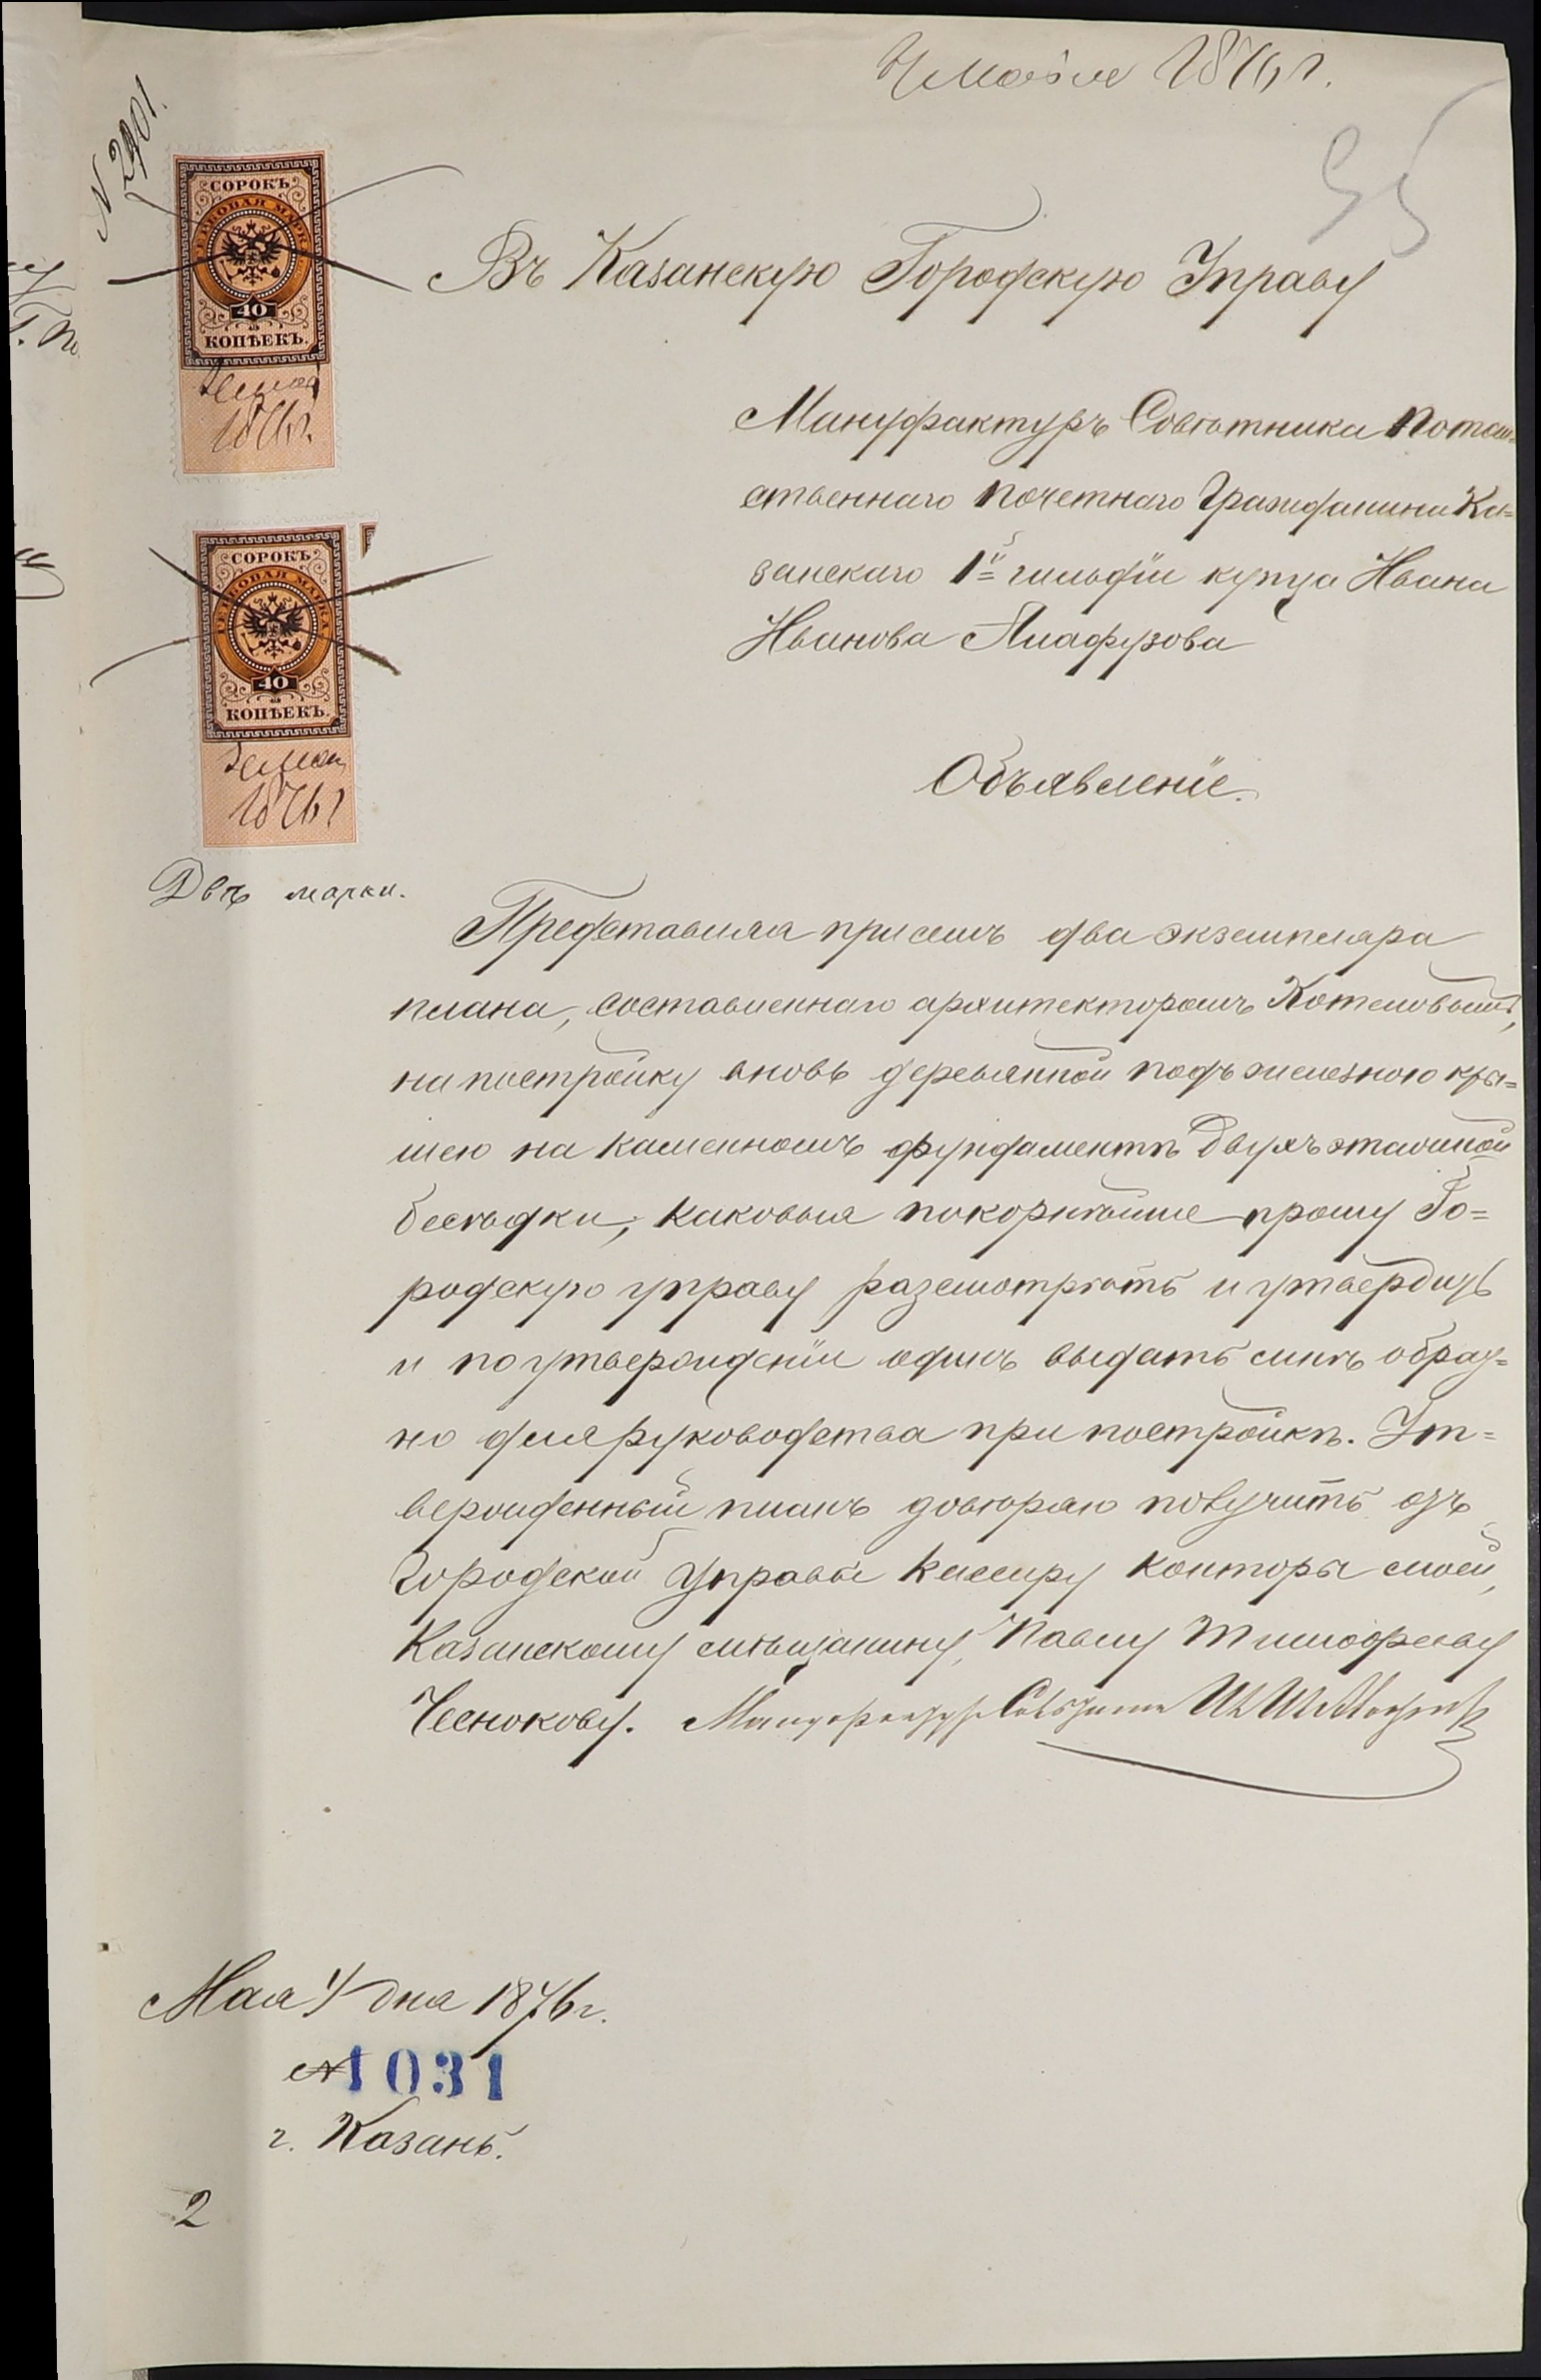 Мая 1876 г.
95
N 2901.
СОРОКЪ
ГЕРБОВАЯ МАРКА
40
КОПѢЕКЪ.
1876 г.
СОРОКЪ
ГЕРБОВАЯ МАРКА
40
КОПѢЕКЪ.
1876 г
Двѣ марки.
Въ Казанскую Городскую Управу
Мануфактуръ Совѣтника Потом-
ственнаго Почетнаго Гражданина Ка=
занскаго 1й гильдіи купца Ивана
Иванова Алафузова
Объявленіе.
Представляя присемъ два экземпляра
плана, составленнаго архитекторомъ Котеловымъ,
на постройку вновь деревянной подъ железною кры=
шею на каменномъ фундаментѣ двухъ этажной
бесѣдки, каковыя покорнѣйше прошу Го=
родскую управу разсмотрѣть и утвердить
и по утвержденіи одинъ выдать мнѣ обрат=
но для руководства при постройкѣ. Ут=
вержденный планъ довѣряю получить изъ
Городской Управы кассиру конторы моей,
Казанскому мѣщанину, Павлу Тимофееву
Чеснокову. Мануфактуръ Совѣтникъ
Мая 4 дня 1876 г.
№ 1031
г. Казань.
2